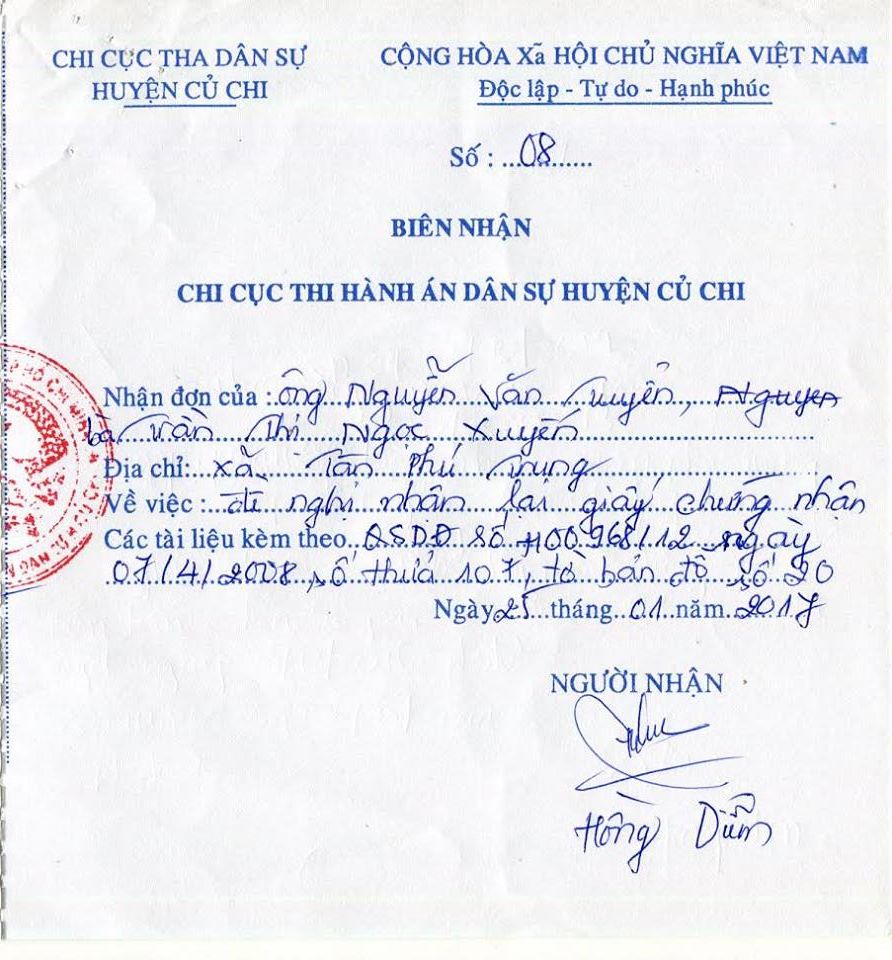 CHI CỤC THA DÂN SỰ
HUYỆN CỦ CHI
CỘNG HÒA Xã HỘI CHỦ NGHĨA VIỆT NAM
Độc lập - Tự do - Hạnh phúc
Số : ...08.......
BIÊN NHẬN
CHI CỤC THI HÀNH ÁN DÂN SỰ HUYỆN CỦ CHI
Nhận đơn của : ông Nguyễn Văn Tuyển, Nguyen
bà Trần Thị Ngọc Xuyến
Địa chỉ: Xã Tân Phú Trung
Về việc : đề nghị nhận lại giấy chứng nhận
Các tài liệu kèm theo QSDĐ số H00968/12 ngày
07/4/2008, số thửa 107, tờ bản đồ số 20
Ngày 25 tháng 01 năm 2017
NGƯỜI NHẬN
Hồng Diễm